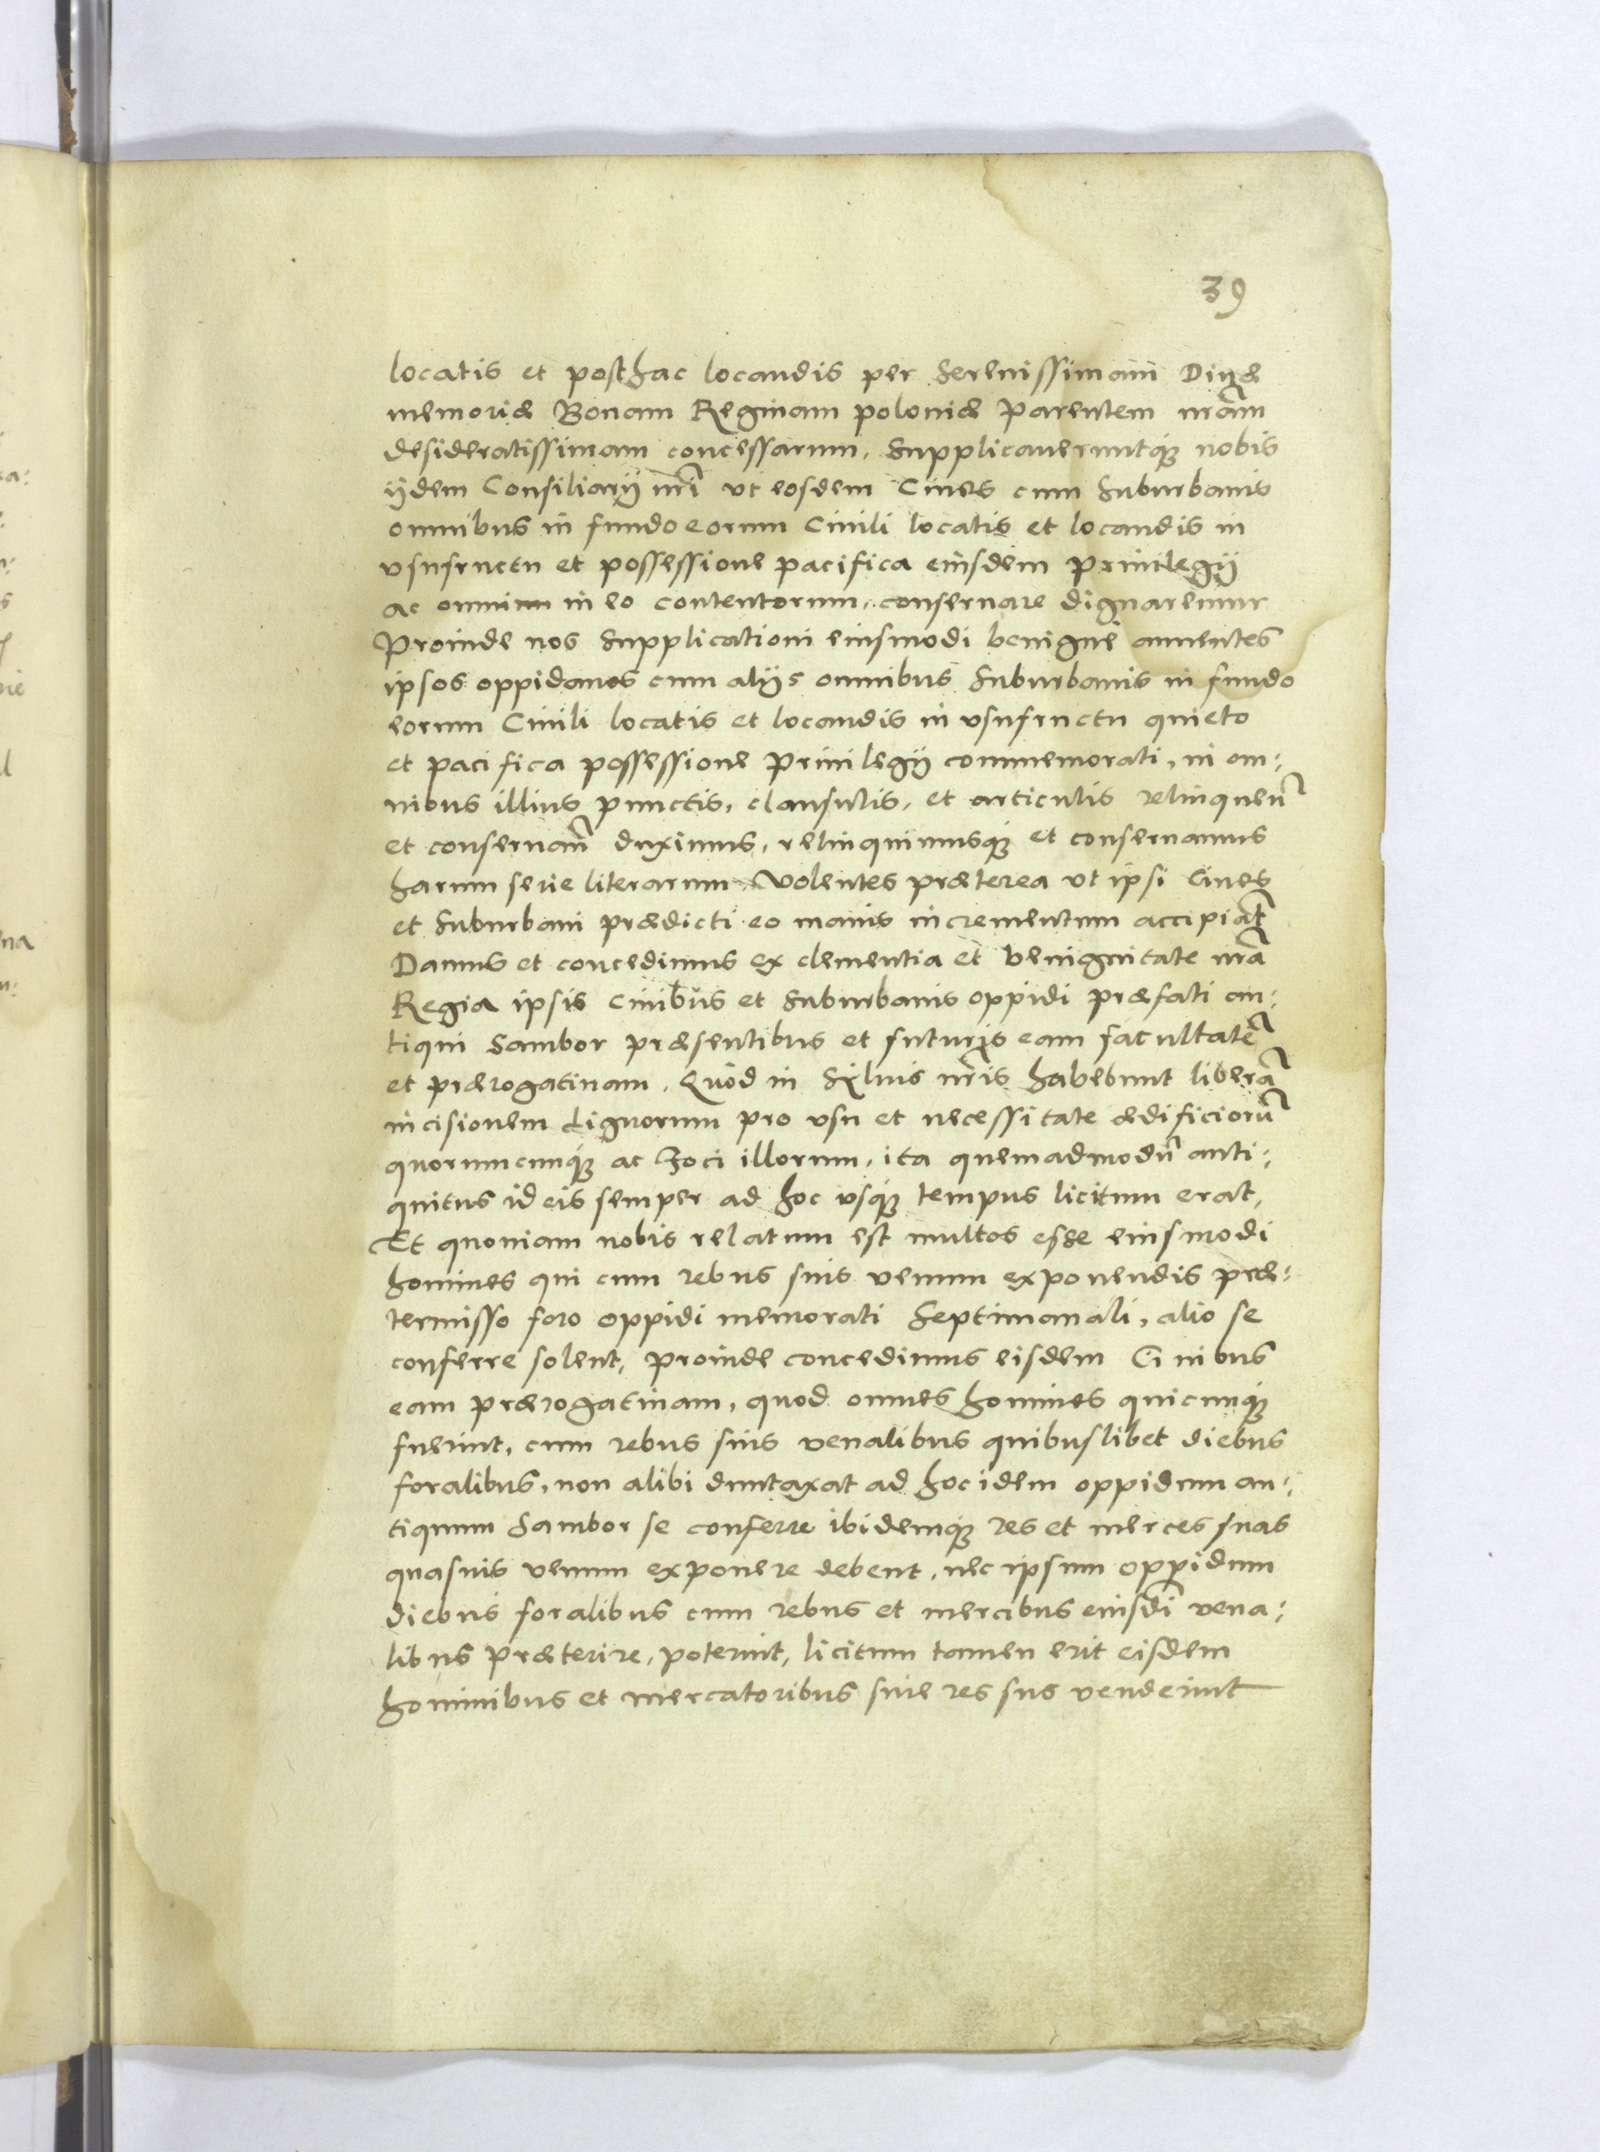 39
locatis et posthac locandis per Serenissimam Diuæ
memoriæ Bonam Reginam poloniæ Parentem nr̃am
desideratissimam concessarum, Supplicaueruntq́ȝ nobis
ijdem Consiliarij nr̃i vt eosdem Ciues cum Suburbanis
omnibus in fundo eorum Ciuili locatis et locandis in
vsufructu et possessione pacifica eiusdem Priuilegij
ac omnium in eo contentorum, conseruare dignaremur
Proinde nos Supplicationi eiusmodi benigne annuentes
ipsos oppidanos cum alijs omnibus Suburbanis in fundo
eorum Ciuili locatis et locandis in vsufructu quieto
et pacifica possessione Priuilegij commemorati, in om:
nibus illius punctis, clausulis, et articulis relinquen̄
et conseruan̄ duximus, relinquimusq́ȝ et conseruamus
harum serie literarum. Volentes præterea vt ipsi Ciues
et Suburbani prædicti eo maius incrementum accipiãt
Damus et concedimus ex clementia et benignitate nr̃a
Regia ipsis Ciuibus et Suburbanis oppidi præfati an:
tiqui Sambor præsentibus et futuris eam facultatẽ
et prærogatiuam, Quòd in Syluis nr̃is habebunt liberã
incisionem Lignorum pro vsu et necessitate ædificiorũ
quorumcunq́ȝ ac Foci illorum, ita quemadmodũ anti:
quitus id eis semper ad hoc vsq́ȝ tempus licitum erat,
Et quoniam nobis relatum est multos esse eiusmodi
homines qui cum rebus suis venum exponendis præ:
termisso foro oppidi memorati Septimanali, alio se
conferre solent, Proinde concedimus eisdem Ciuibus
eam prærogatiuam, quod omnes homines quicunq́ȝ
fuerint, cum rebus suis venalibus quibuslibet diebus
foralibus, non alibi duntaxat ad hoc idem oppidum an:
tiquum Sambor se conferre ibidemq́ȝ res et merces suas
quasuis venum exponere debent, nec ipsum oppidum
diebus foralibus cum rebus et mercibus eiusdi͂ vena:
libus Præterire, poterint, licitum tamen erit eisdem
hominibus et mercatoribus siue res sus venderint